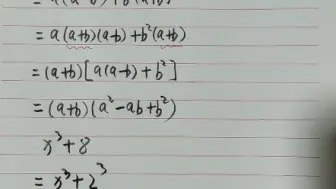 = a(a+b)(a-b)+b²(a+b)
= (a+b)[a(a-b)+b²]
= (a+b)(a²-ab+b²)
x³+8
= x³+2³